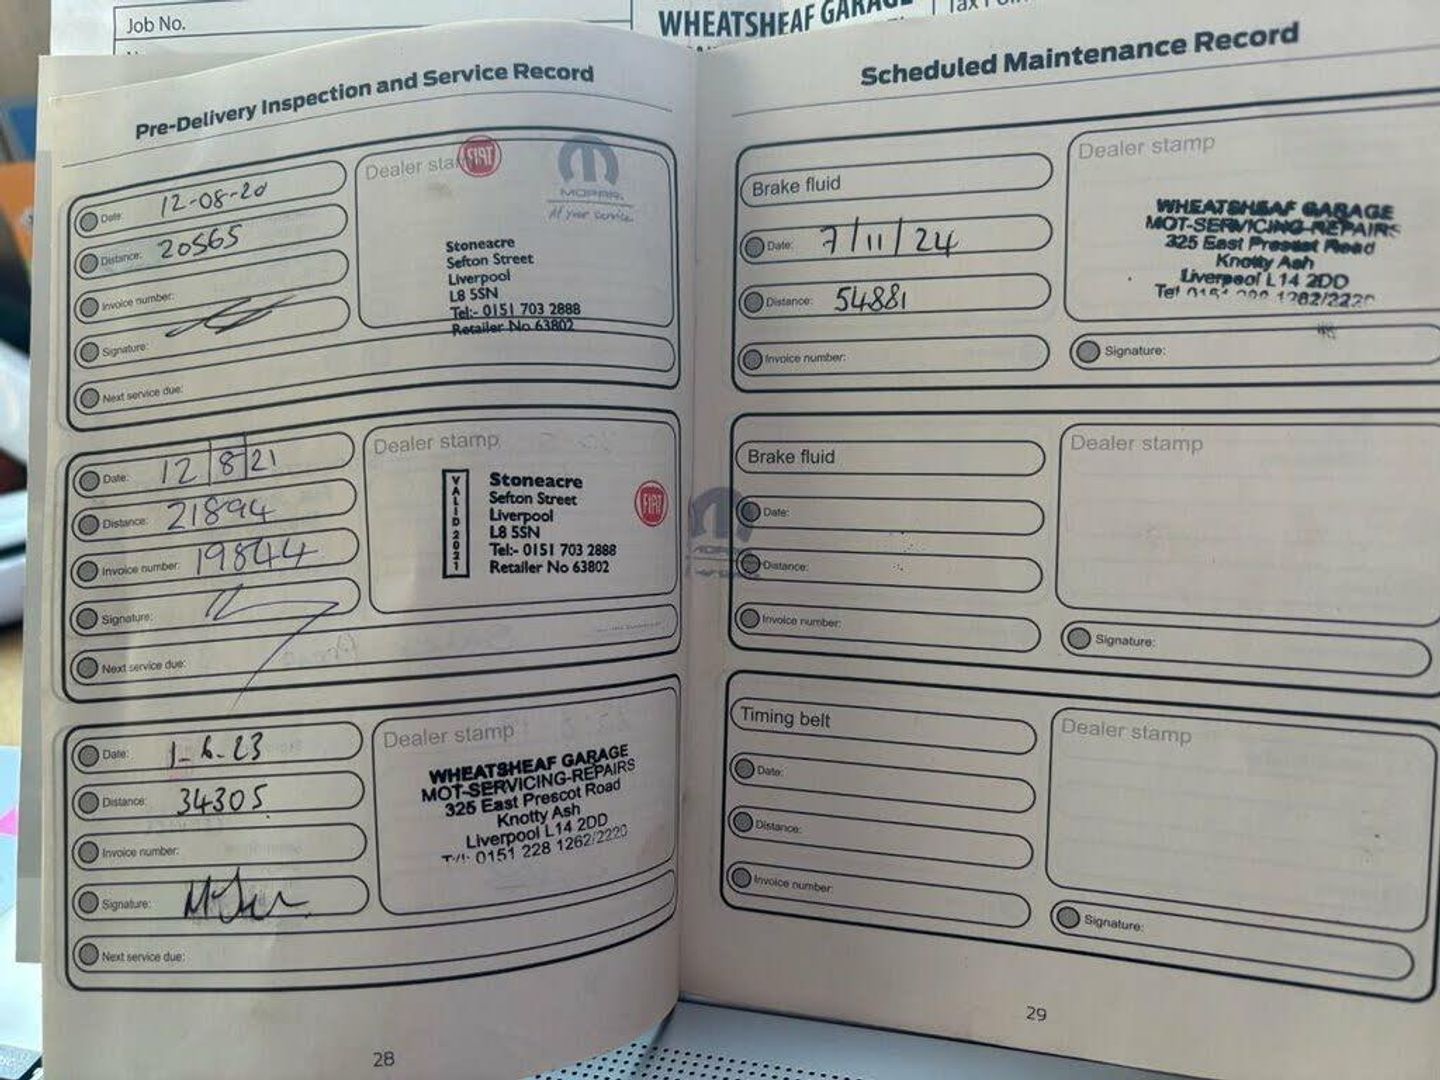 Job No.
WHEATSHEAF GARAGE
Pre-Delivery Inspection and Service Record
Date: 12-08-20
Distance: 20565
Invoice number:
Signature:
Next service due:
Dealer stamp
FIAT
MOPAR.
At your service.
Stoneacre
Sefton Street
Liverpool
L8 5SN
Tel:- 0151 703 2888
Retailer No 63802
Date: 12 8 21
Distance: 21894
Invoice number: 19844
Signature:
Next service due:
Dealer stamp
VALID 2021
Stoneacre
Sefton Street
Liverpool
L8 5SN
Tel:- 0151 703 2888
Retailer No 63802
FIAT
MOPAR
Date: 1-6-23
Distance: 34305
Invoice number:
Signature:
Next service due:
Dealer stamp
WHEATSHEAF GARAGE
MOT-SERVICING-REPAIRS
325 East Prescot Road
Knotty Ash
Liverpool L14 2DD
Tel: 0151 228 1262/2220
28
Scheduled Maintenance Record
Brake fluid
Date: 7/11/24
Distance: 54881
Invoice number:
Dealer stamp
WHEATSHEAF GARAGE
MOT-SERVICING-REPAIRS
325 East Prescot Road
Knotty Ash
Liverpool L14 2DD
Tel 0151 228 1262/2220
Signature:
Brake fluid
Date:
Distance:
Invoice number:
Dealer stamp
Signature:
Timing belt
Date:
Distance:
Invoice number:
Dealer stamp
Signature:
29